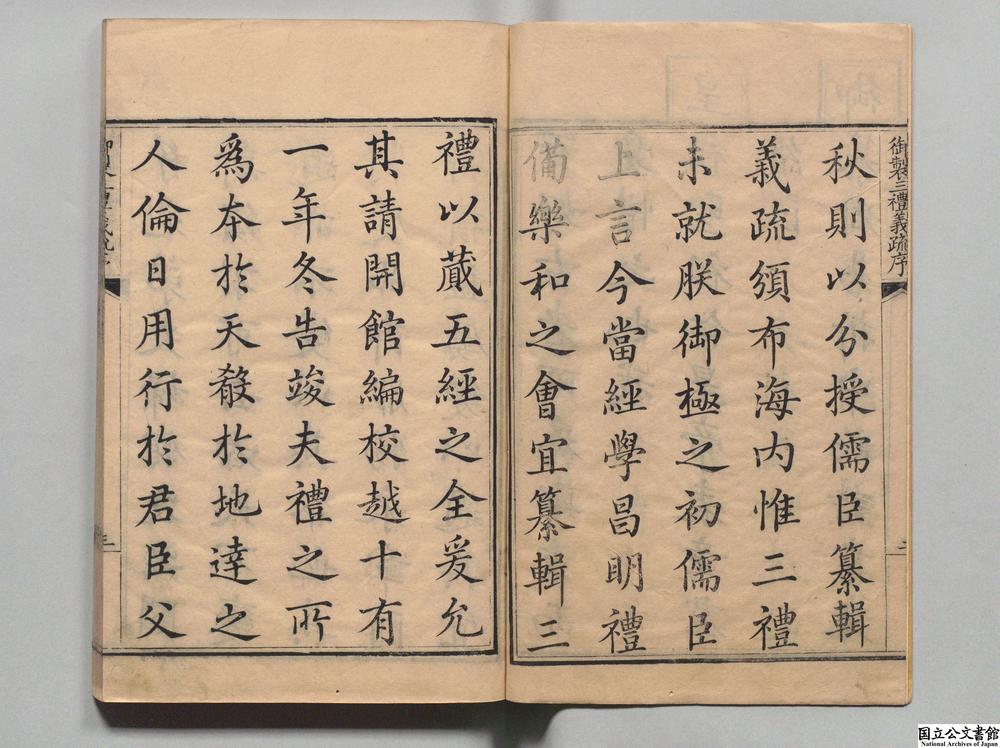 御製三禮義疏序
二
秋則以分授儒臣纂輯
義疏頒布海內惟三禮
未就朕御極之初儒臣
上言今當經學昌明禮
備樂和之會宜纂輯三
禮以蕆五經之全爰允
其請開館編校越十有
一年冬告竣夫禮之所
為本於天殽於地達之
人倫日用行於君臣父
三
国立公文書館
National Archives of Japan